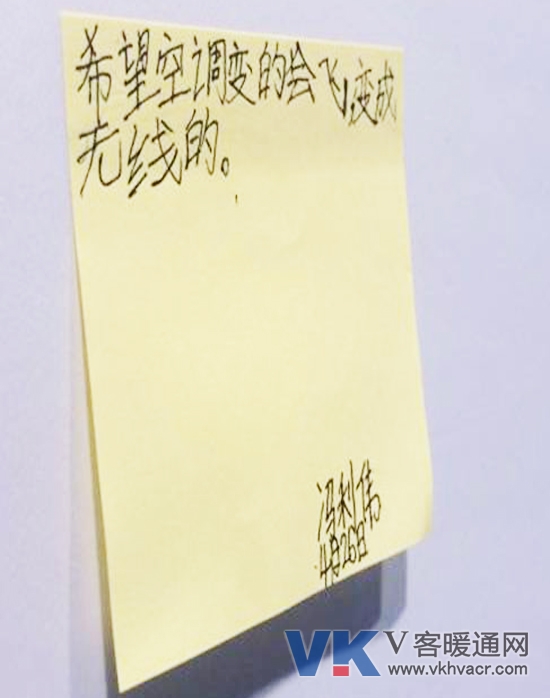 希望空调变的会飞,变成
无线的。
冯利伟
4月26日
VK V客暖通网
www.vkhvacr.com